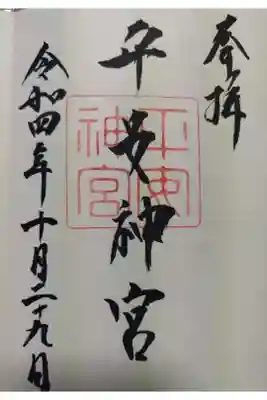 奉拝
平安神宮
平安
神宮
令和四年十月二十九日